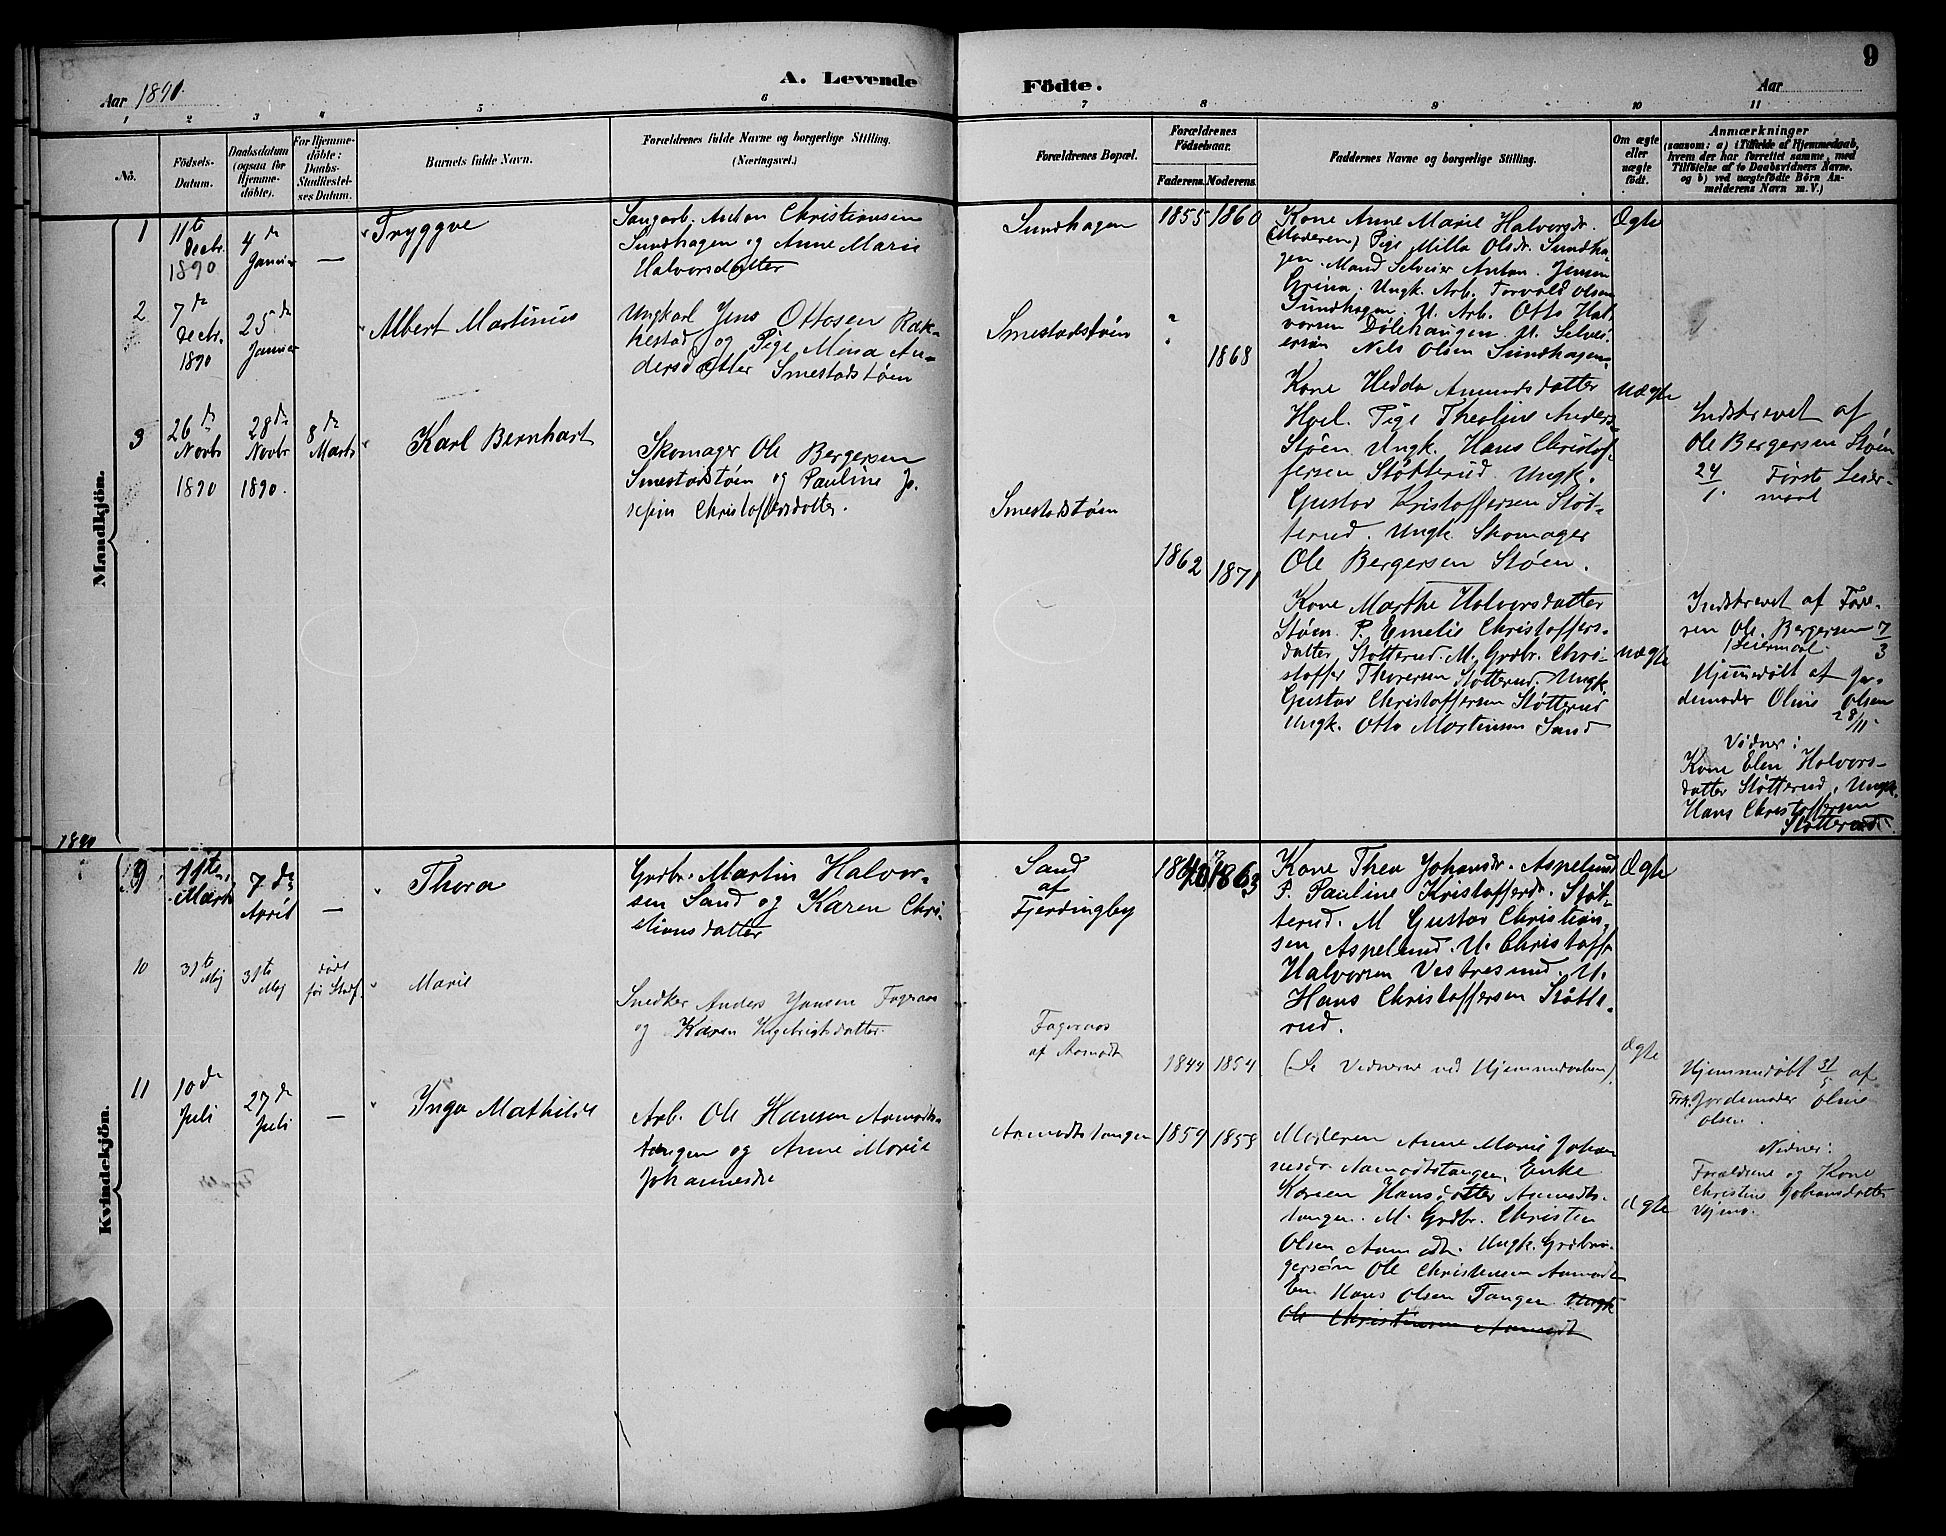 9
A. Levende Födte.
Aar 1891.
Aar
1 2 3 4 5 6 7 8 9 10 11
No.
Födsels-
Datum.
Daabsdatum
(ogsaa for
Hjemme-
döbte).
For Hjemme-
döbte:
Daabs-
Stadfæstel-
ses Datum.
Barnets fulde Navn.
Forældrenes fulde Navne og borgerlige Stilling.
(Næringsvei.)
Forældrenes Bopæl.
Forældrenes
Födselsaar.
Faderens. Moderens.
Faddernes Navne og borgerlige Stilling.
Om ægte
eller
uægte
födt.
Anmærkninger
(saasom: a) i Tilfælde af Hjemmedaab,
hvem der har forrettet samme, med
Tilföielse af to Daabsvidners Navne,
og b) ved uægtefödte Börn An-
melderens Navn m. V.)
Mandkjön.
1
11te
Decbr.
1890
4de
Januar
—
Tryggve
Sagarb. Anton Christiansen
Sundhagen og Anne Marie
Halvorsdatter
Sundhagen
1855 1860
Kone Anne Marie Halvorsdr.
(Moderen) Pige Milla Olsdr. Sundha-
gen. Mand Selveier Anton Jensen
Grina. Ungk. Arb. Torvald Olsen
Sundhagen. U. Arb. Otto Hal-
vorsen Dölehaugen U. Selvei-
ersön Nils Olsen Sundhagen
Ægte
2
7de
Decbr.
1890
25de
Januar
Albert Martinius
Ungkarl Jens Ottosen Rak-
kestad og Pige Mina An-
dersdatter Smestadstøen
Smestadstøen
"
"
1868
Kone Hedda Amundsdatter
Hoel. Pige Theoline Anders
Støen Ungk. Hans Christof-
fersen Støtterud Ungk.
Gustav Kristoffersen Støt-
terud. Ungk. Skomager
Ole Bergersen Støen.
Uægte
Indskrevet af
Ole Bergersen Støen
24/1. Første Leier-
maal
3
26de
Novbr
1890
28de
Novbr
1890.
8de
Marts
Karl Bernhart
Skomager Ole Bergersen
Smestadstøen og Pauline Jo-
sefine Christoffersdatter.
Smestadstøen
1862 1871
Kone Marthe Halvorsdatter
Støen. P. Emelie Christoffers-
datter Støtterud. M. Grdbr. Chri-
stoffer Thoresen Støtterud. Ungk.
Gustav Christoffersen Støtterud
Ungk. Otto Martinsen Sand
Uægte
Indskrevet af Fade-
ren Ole Bergersen 7/3
Leiermaal.
Hjemmedøbt af Jor-
demoder Oline Olsen
28/11.
Vidner:
Kone Elen Halvors-
datter Støtterud, Ungk.
Hans Christoffersen
Støtterud
1890
Kvindekjön.
9
11te
Marts
7de
April
—
Thora
Grdbr. Martin Halvor-
sen Sand og Karen Chri-
stiansdatter
Sand
af
Fjerdingby
1840 1863
Kone Thea Johansdr. Aspelund
P. Pauline Kristofferdr. Støt-
terud. M Gustav Christian-
sen Aspelund. U. Christoffr
Halvorsen Vestresund. U.
Hans Christoffersen Støtte-
rud.
Ægte
10
31te
Maj
31te
Maj
døde
før Stadf
Marie
Snedker Anders Jansen Fageraas
og Karen Engebrigtsdatter.
Fageraas
af Aamodt
1844 1854
(Se Vidnerne ved Hjemmedaaben)
Ægte
Hjemmedøbt 31/5 af
Jordemoder Oline
Olsen.
Vidner:
Forældrene og Kone
Christine Johansdatter
11
10de
Juli
27de
Juli
—
Inga Mathilde
Arb. Ole Hansen Aamodts-
tangen og Anne Marie
Johannesdr
Aamodtstangen
1859 1858
Moderen Anne Marie Johan-
nesdr. Aamodtstangen, Enke
Karen Hansdatter Aamodts-
tangen. M. Grdbr. Christen
Olsen Aamodt. Ungk. Grdbru-
gersøn Ole Christensen Aamodt
Em. Hans Olsen Tangen. Ungk
Ole Christensen Aamodt
Ægte